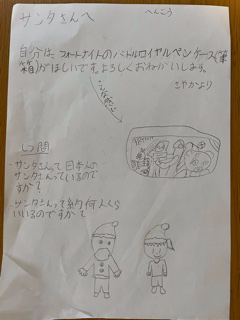 サンタさんへ
へんこう
自分は、フォートナイトのバトルロイヤルペンケース(筆
箱)がほしいですよろしくおねがいします。
さやかより
こんなかんじ
質問
・サンタさんって日本人の
サンタさんっているので
すか?
・サンタさんって約何人くら
いいるのですか?